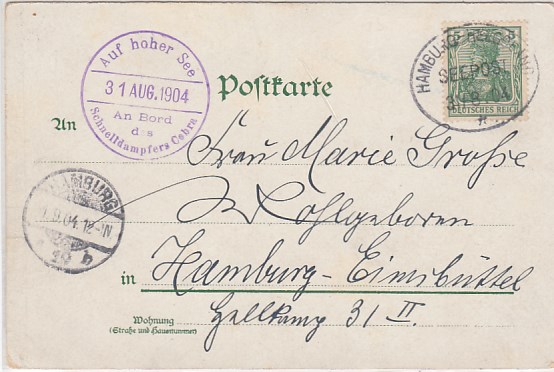 Auf hoher See
31 AUG. 1904
An Bord
des
Schnelldampfers Cobra
Postkarte
HAMBURG
SEEPOST
DEUTSCHES REICH
An
Frau Marie Große
Wohlgeboren
HAMBURG
1.9.04.12-1N
19 b
in Hamburg-Eimsbüttel
31 II.
Wohnung
(Straße und Hausnummer)